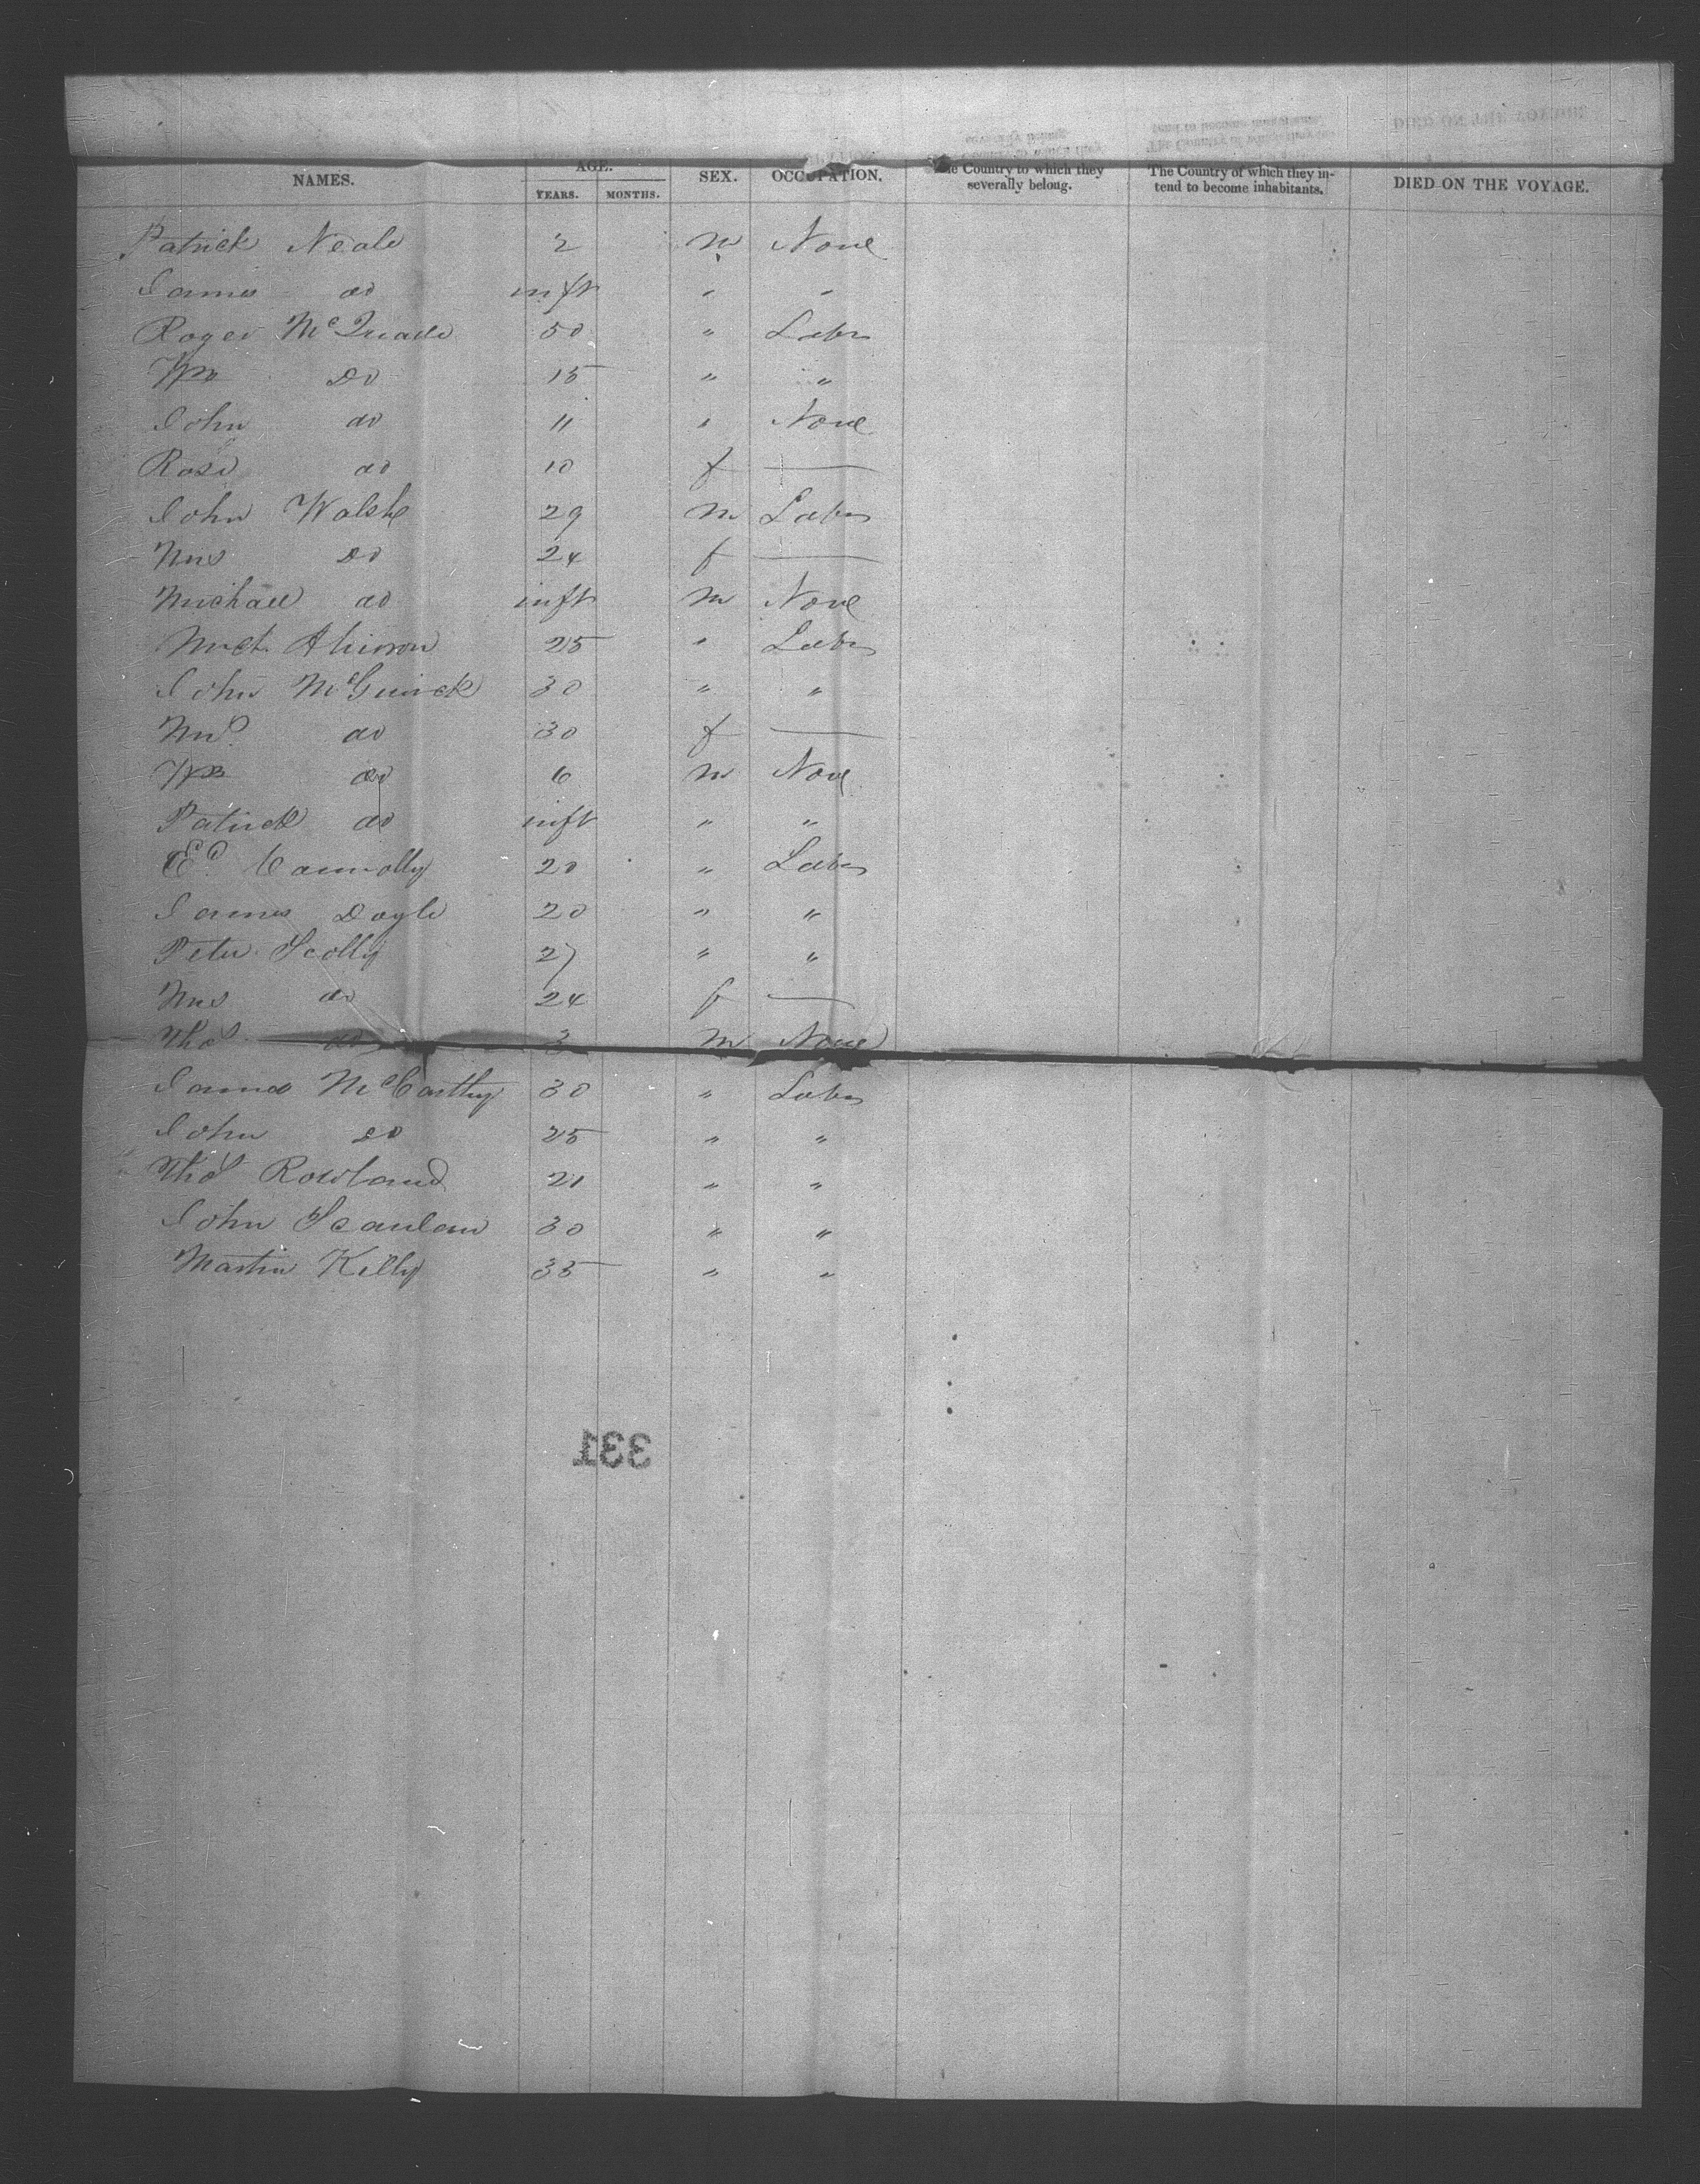 NAMES. AGE. YEARS. MONTHS. SEX. OCCUPATION. The Country to which they severally belong. The Country of which they intend to become inhabitants. DIED ON THE VOYAGE.
Patrick Neale 2 m None
James do inft " "
Roger McQuade 50 " Labr
Wm Do 15 " "
John do 11 " None
Rose do 10 f —
John Walsh 29 m Labr
Mrs Do 24 f —
Michael do inft m None
Micl. 25 " Labr
John McGuirck 30 " "
Mrs. do 30 f —
Wm do 6 m None
Patrick do inft " "
Ed. Connolly 20 " Labr
James Doyle 20 " "
Peter Scolly 27 " "
Mrs do 24 f —
Thos do 3 m None
James McCarthy 30 " Labr
John Do 25 " "
Thos Rowland 21 " "
John Scanlan 30 " "
Martin Kelly 35 " "
331